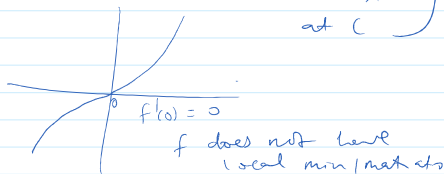 at C
0
f'(0) = 0
f does not have
local min/max at 0